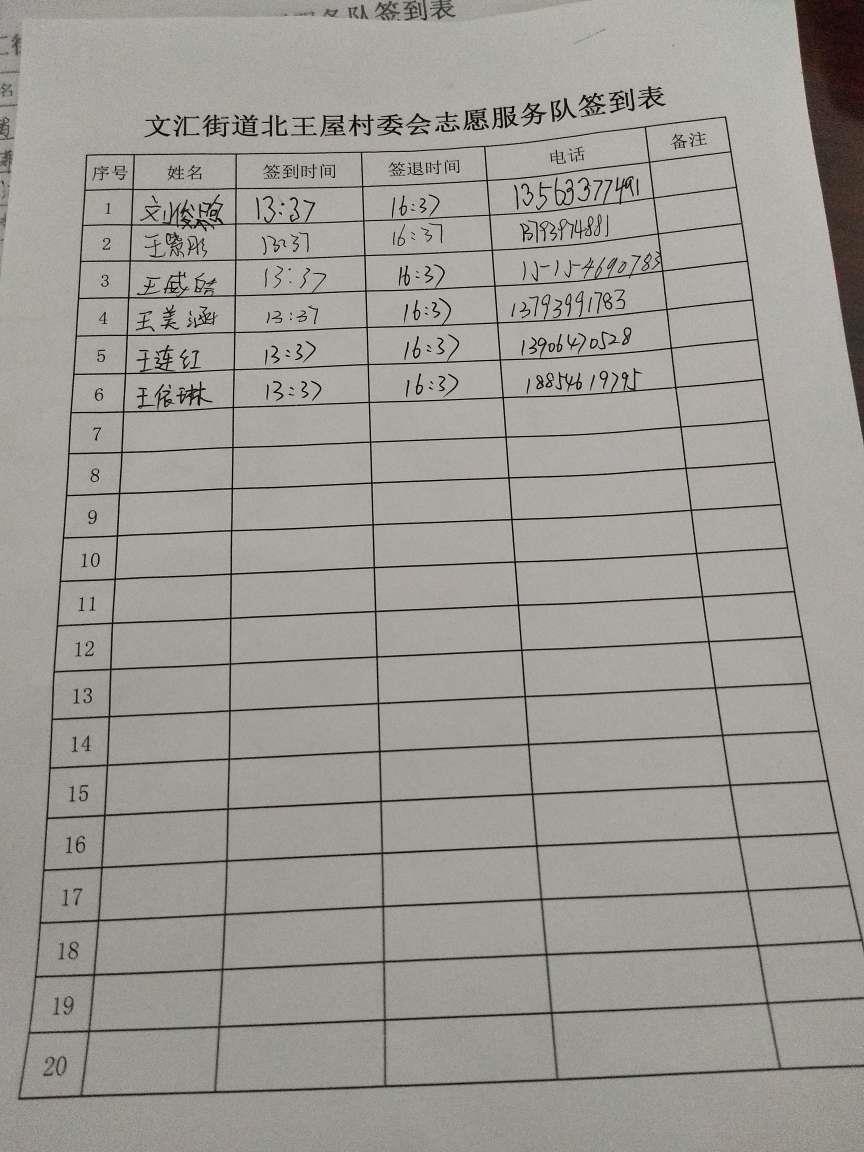 服务队签到表
名
文汇街道北王屋村委会志愿服务队签到表
序号 姓名 签到时间 签退时间 电话 备注
1 刘俊照 13:37 16:37 13563377491
2 王 彤 13:37 16:37 13793974881
3 王 13:37 16:37 15154690783
4 王美涵 13:37 16:37 13793991783
5 王连红 13:37 16:37 13906470528
6 王依琳 13:37 16:37 18854619795
7
8
9
10
11
12
13
14
15
16
17
18
19
20